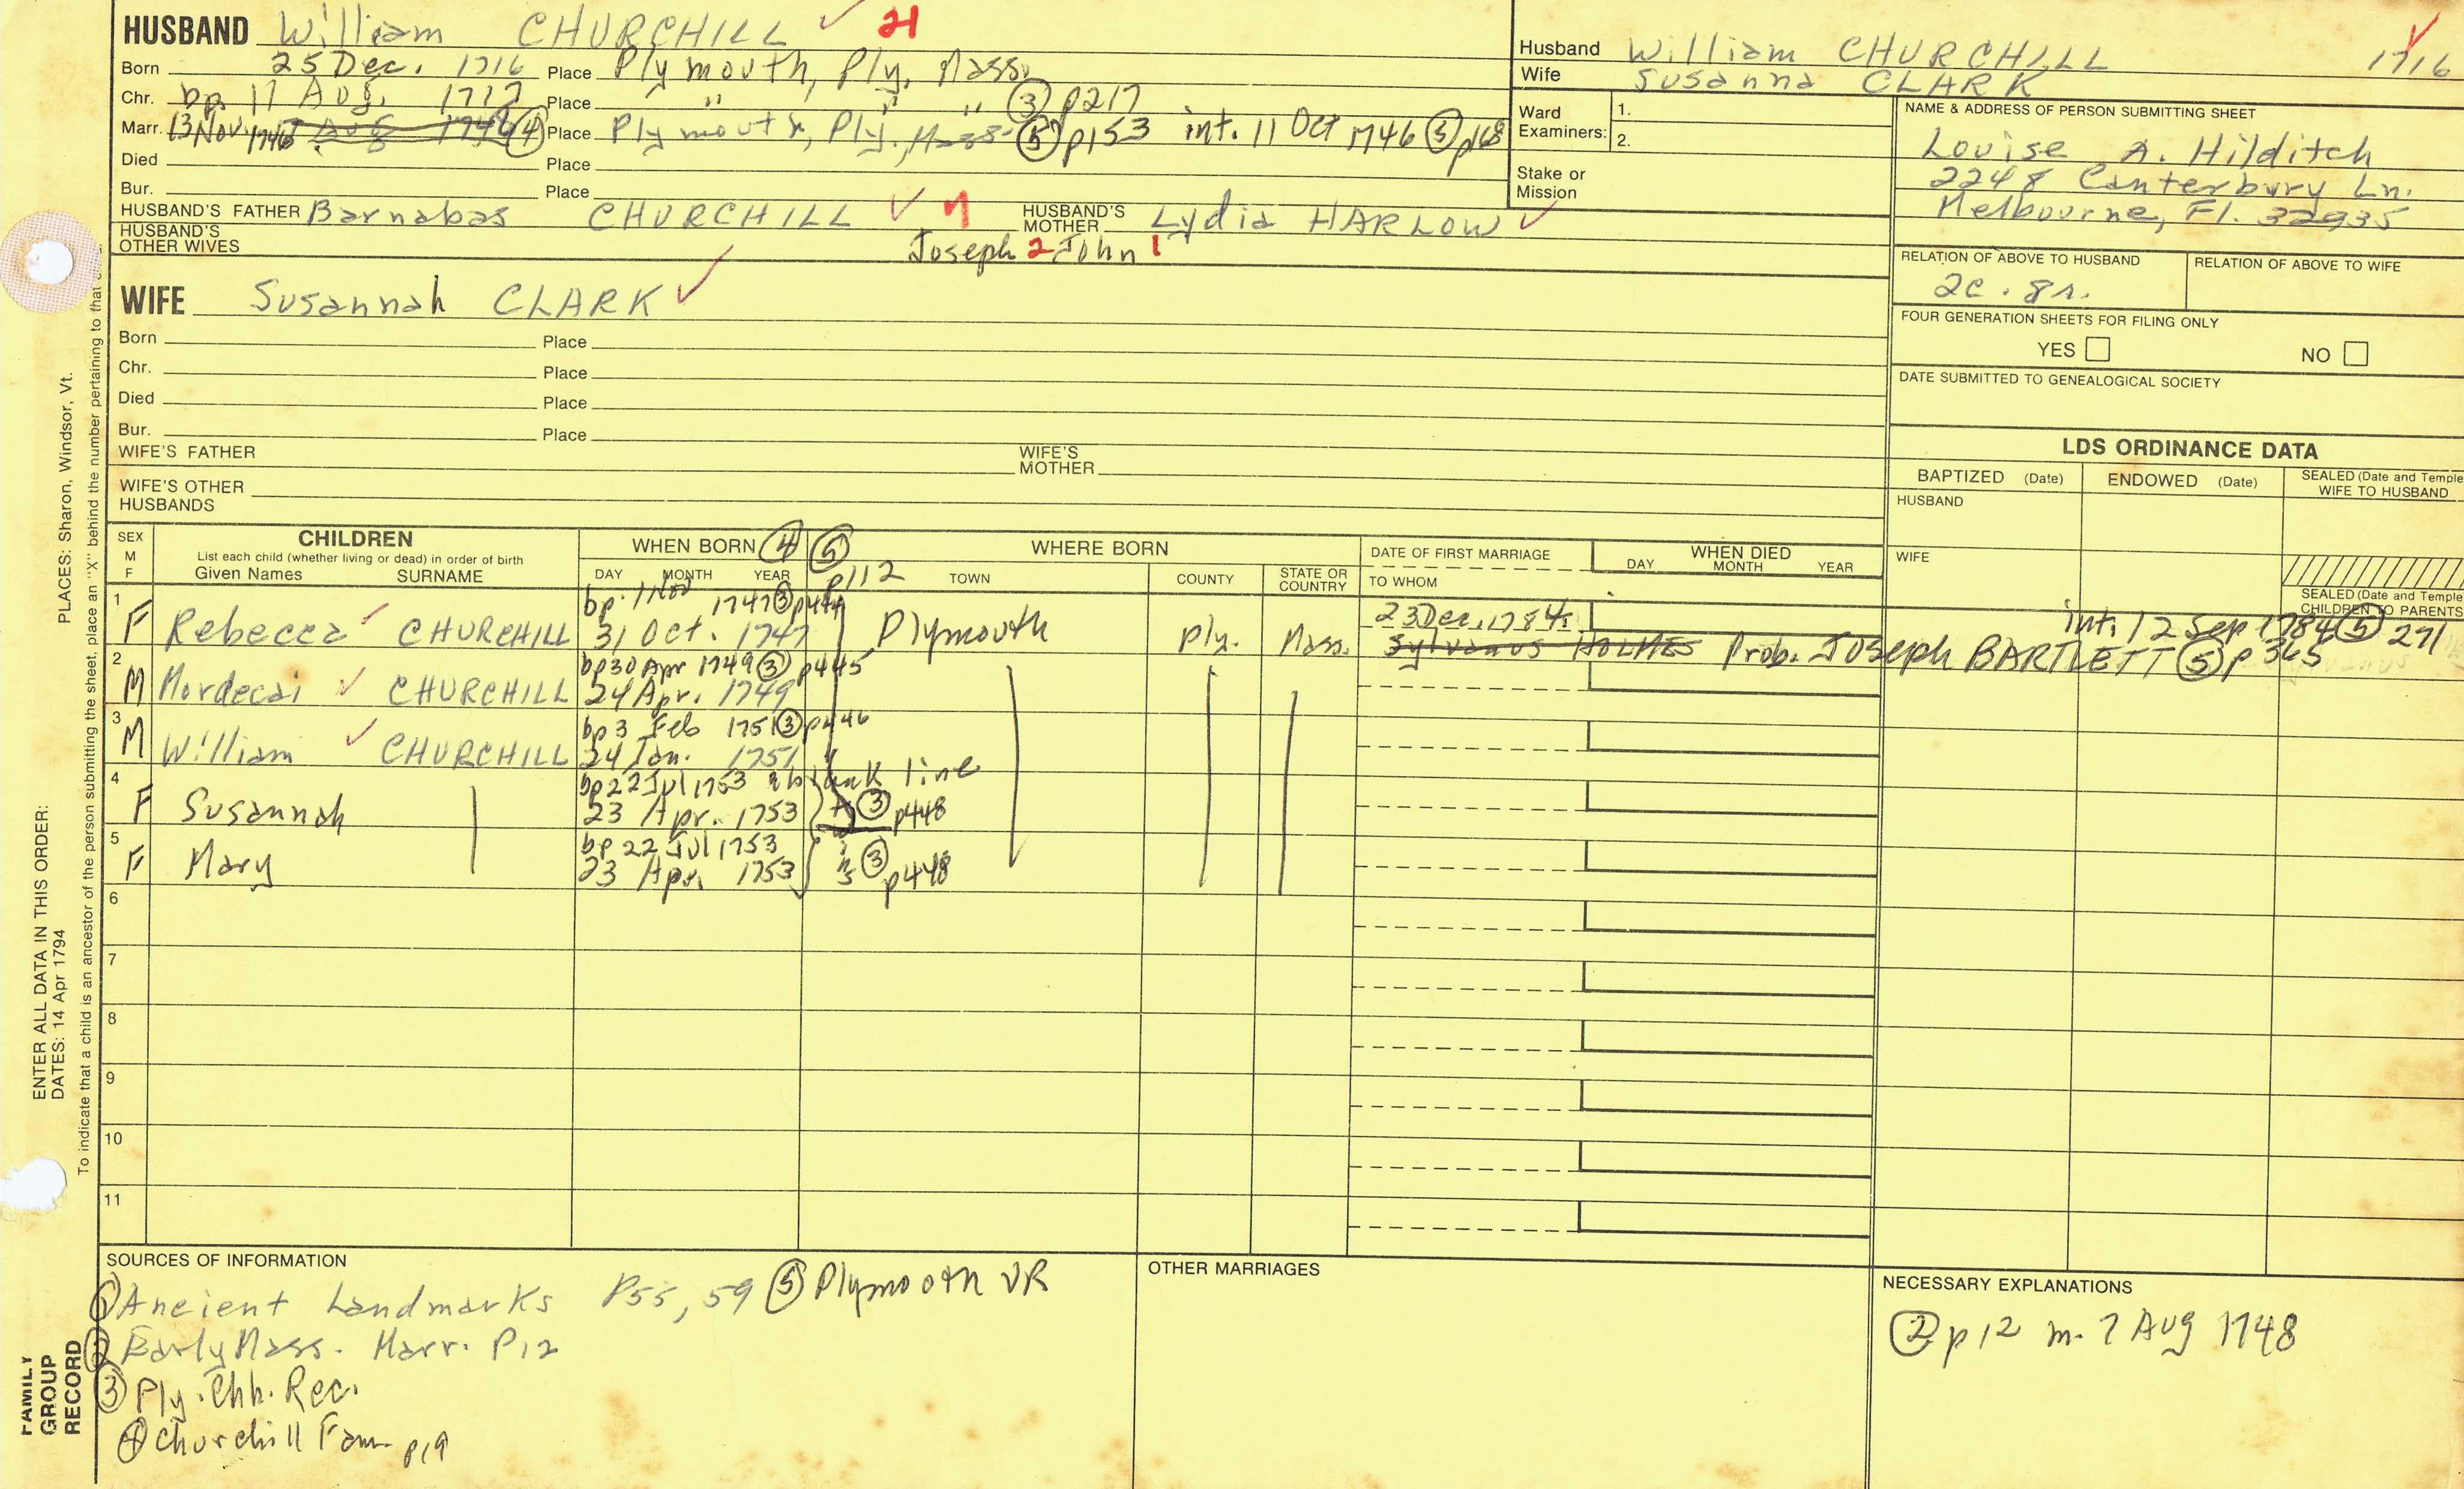 HUSBAND William CHURCHILL ✓ 21
Born 25 Dec. 1716 Place Plymouth, Ply, Mass.
Chr. bp 11 Aug. 1717 Place " " " ③ p217
Marr. 13 Nov. 1746 7 Aug 1748 ④ Place Plymouth, Ply., Mass. ⑤ p153 int. 11 Oct 1746 ⑤ p168
Died Place
Bur. Place
HUSBAND'S FATHER Barnabas CHURCHILL ✓ 7 HUSBAND'S MOTHER Lydia HARLOW ✓
HUSBAND'S OTHER WIVES Joseph 2 John 1
WIFE Susannah CLARK ✓
Born Place
Chr. Place
Died Place
Bur. Place
WIFE'S FATHER WIFE'S MOTHER
WIFE'S OTHER HUSBANDS
Husband William CHURCHILL 1716
Wife Susanna CLARK
Ward Examiners: 1.
2.
Stake or Mission
NAME & ADDRESS OF PERSON SUBMITTING SHEET
Louise A. Hilditch
2248 Canterbury Ln.
Melbourne, Fl. 32935
RELATION OF ABOVE TO HUSBAND RELATION OF ABOVE TO WIFE
2c. 8r.
FOUR GENERATION SHEETS FOR FILING ONLY
YES NO
DATE SUBMITTED TO GENEALOGICAL SOCIETY
LDS ORDINANCE DATA
BAPTIZED (Date) ENDOWED (Date) SEALED (Date and Temple) WIFE TO HUSBAND
HUSBAND
WIFE
SEALED (Date and Temple) CHILDREN TO PARENTS
SEX M F
CHILDREN
List each child (whether living or dead) in order of birth
Given Names SURNAME
WHEN BORN ④ ⑤ p112
DAY MONTH YEAR
WHERE BORN
TOWN COUNTY STATE OR COUNTRY
DATE OF FIRST MARRIAGE
TO WHOM
WHEN DIED
DAY MONTH YEAR
1 bp. 1 Nov 1747 ③ p444 23 Dec. 1784 int. 12 Sep 1784 ⑤ 271
F Rebecca ✓ CHURCHILL 31 Oct. 1747 Plymouth Ply. Mass. Sylvanus HOLMES Prob. Joseph BARTLETT ⑤ p 365
2 bp 30 Apr 1749 ③ p445
M Mordecai ✓ CHURCHILL 24 Apr. 1749
3 bp 3 Feb 1751 ③ p446
M William ✓ CHURCHILL 24 Jan. 1751
4 bp 22 Jul 1753 blank line
F Susannah 23 Apr. 1753 ③ p448
5 bp 22 Jul 1753
F Mary 23 Apr. 1753 ③ p448
6
7
8
9
10
11
SOURCES OF INFORMATION
① Ancient Landmarks P55, 59 ⑤ Plymouth VR
② Early Mass. Marr. P12
③ Ply. Chh. Rec.
④ Churchill Fam. p19
OTHER MARRIAGES
NECESSARY EXPLANATIONS
② p12 m. 7 Aug 1748
ENTER ALL DATA IN THIS ORDER:
DATES: 14 Apr 1794 PLACES: Sharon, Windsor, Vt.
To indicate that a child is an ancestor of the person submitting the sheet, place an "X" behind the number pertaining to that
FAMILY GROUP RECORD